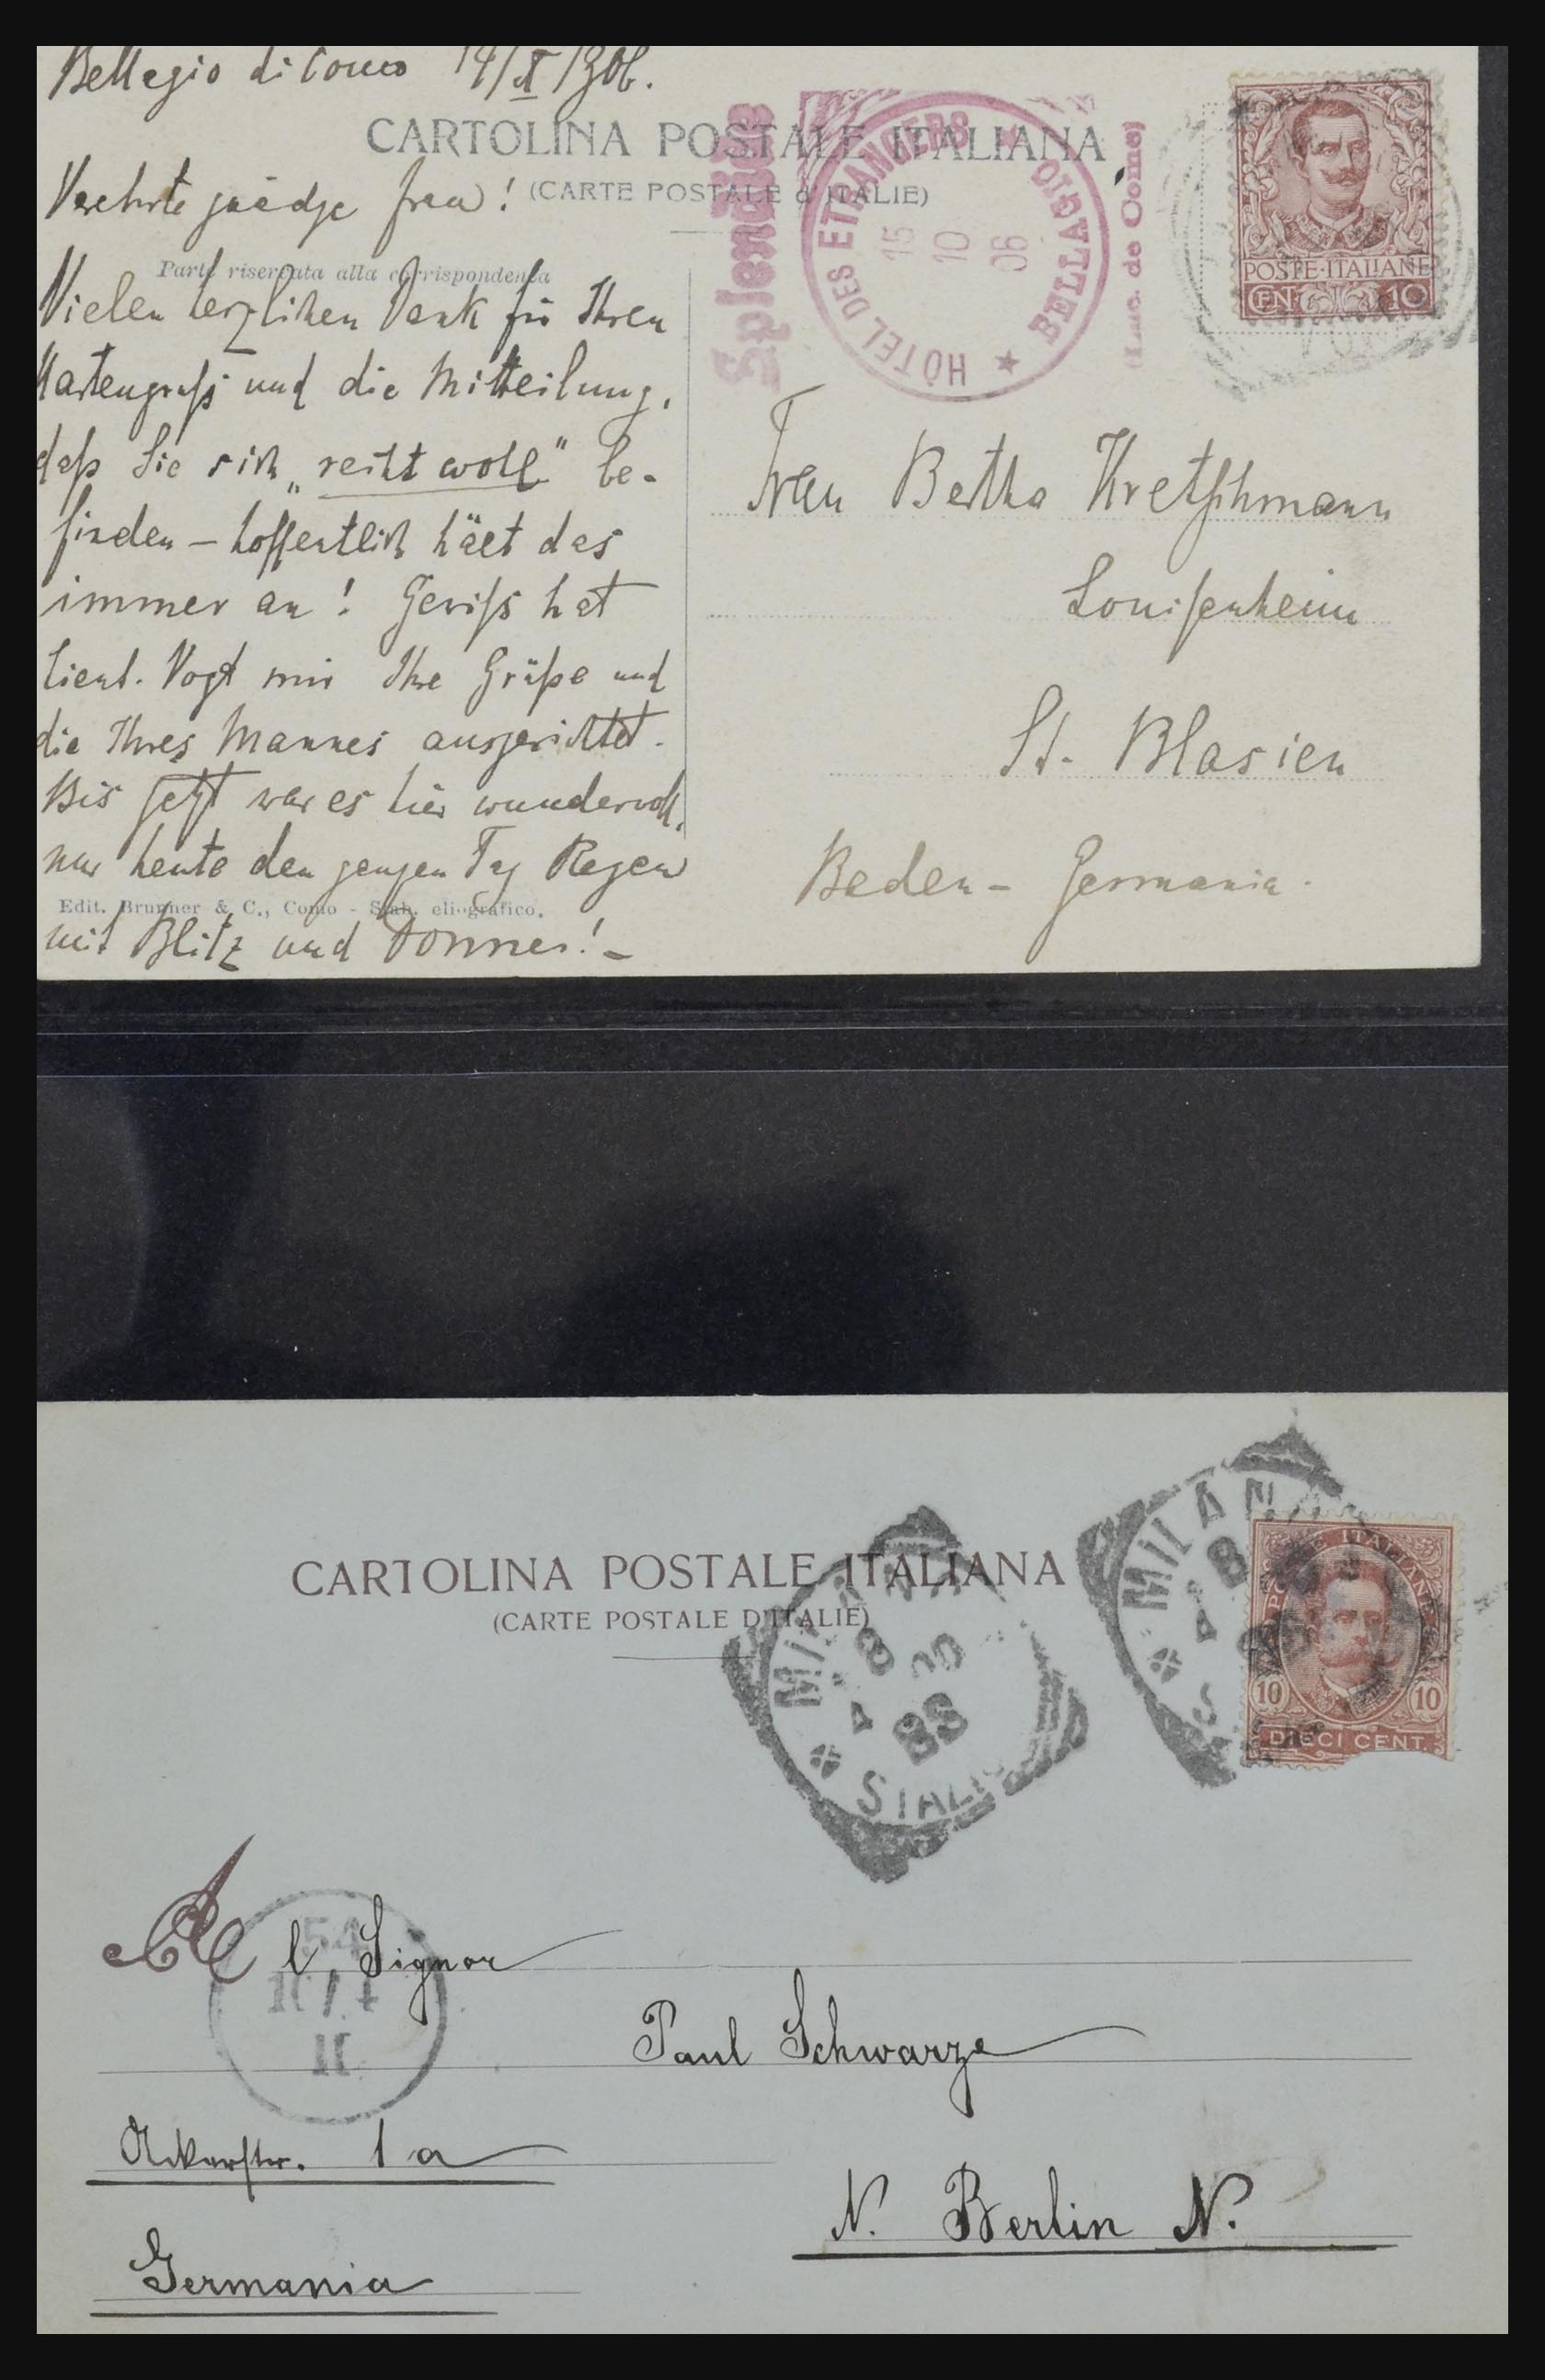 Bellagio di Como 14/X/1906.
CARTOLINA POSTALE ITALIANA
(CARTE POSTALE d'ITALIE)
Verehrte gnädge Frau!
Parte riservata alla corrispondenza
Vielen herzlichen Dank für Ihren
Kartengruß und die Mitteilung,
daß Sie sich „recht wohl" be-
finden – hoffentlich hält das
immer an! Gewiß hat
Lieut. Vogt mir Ihre Grüße und
die Ihres Mannes ausgerichtet.
Bis jetzt war es hier wundervoll,
nur heute den ganzen Tag Regen
Edit. Brunner & C., Como - Stab. eliografico.
mit Blitz und Donner! –
Splendide
HÔTEL DES ETRANGERS
15
10
06
BELLAGIO
(Lac. de Come)
POSTE·ITALIANE
CEN 10
Frau Bertha Kretschmann
Louisenheim
St. Blasien
Baden – Germania.
CARTOLINA POSTALE ITALIANA
(CARTE POSTALE D'ITALIE)
MILANO
8
4
8S
MILAN
8
4
POSTE ITALIANE
10 10
DIECI CENT.
Al Signor
54
Paul Schwarze
Ackerstr. 1a
N. Berlin N.
Germania